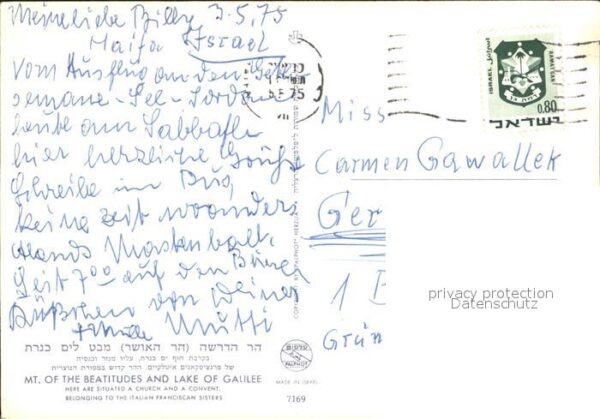 Meine liebe Billy 3.5.75
Haifa Israel
vom Ausflug an den Geth-
semane-See-Jordan
heute am Sabbath
hier herzliche Grüße
Schreibe im Bus,
keine Zeit
Seit 7 00 auf den
Bußchen von Deiner
Mutti
5.5.75
ISRAEL
0.80
ישראל
Miss
Carmen Gawallek
Ger
1 B
Grün
privacy protection
Datenschutz
COPYRIGHT BY "PALPHOT" HERZLIA
הר הדרשה (הר האושר) מבט לים כנרת
בקרבת חוף ים כנרת, עליו מנזר וכנסיה
של פרנציסקאנים איטלקיים. ההר קדוש במסורת הנוצרית
MT. OF THE BEATITUDES AND LAKE OF GALILEE
HERE ARE SITUATED A CHURCH AND A CONVENT.
BELONGING TO THE ITALIAN FRANCISCAN SISTERS
PALPHOT
MADE IN ISRAEL
7169